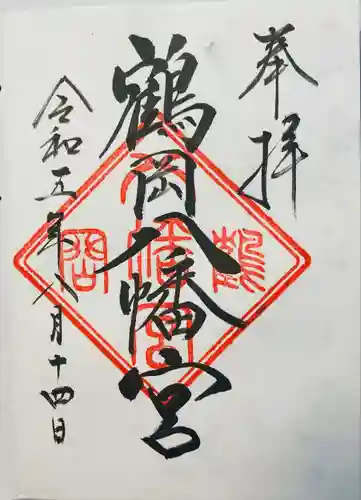 奉拝
鶴岡八幡宮
令和五年八月十四日
鶴
岡
八幡宮